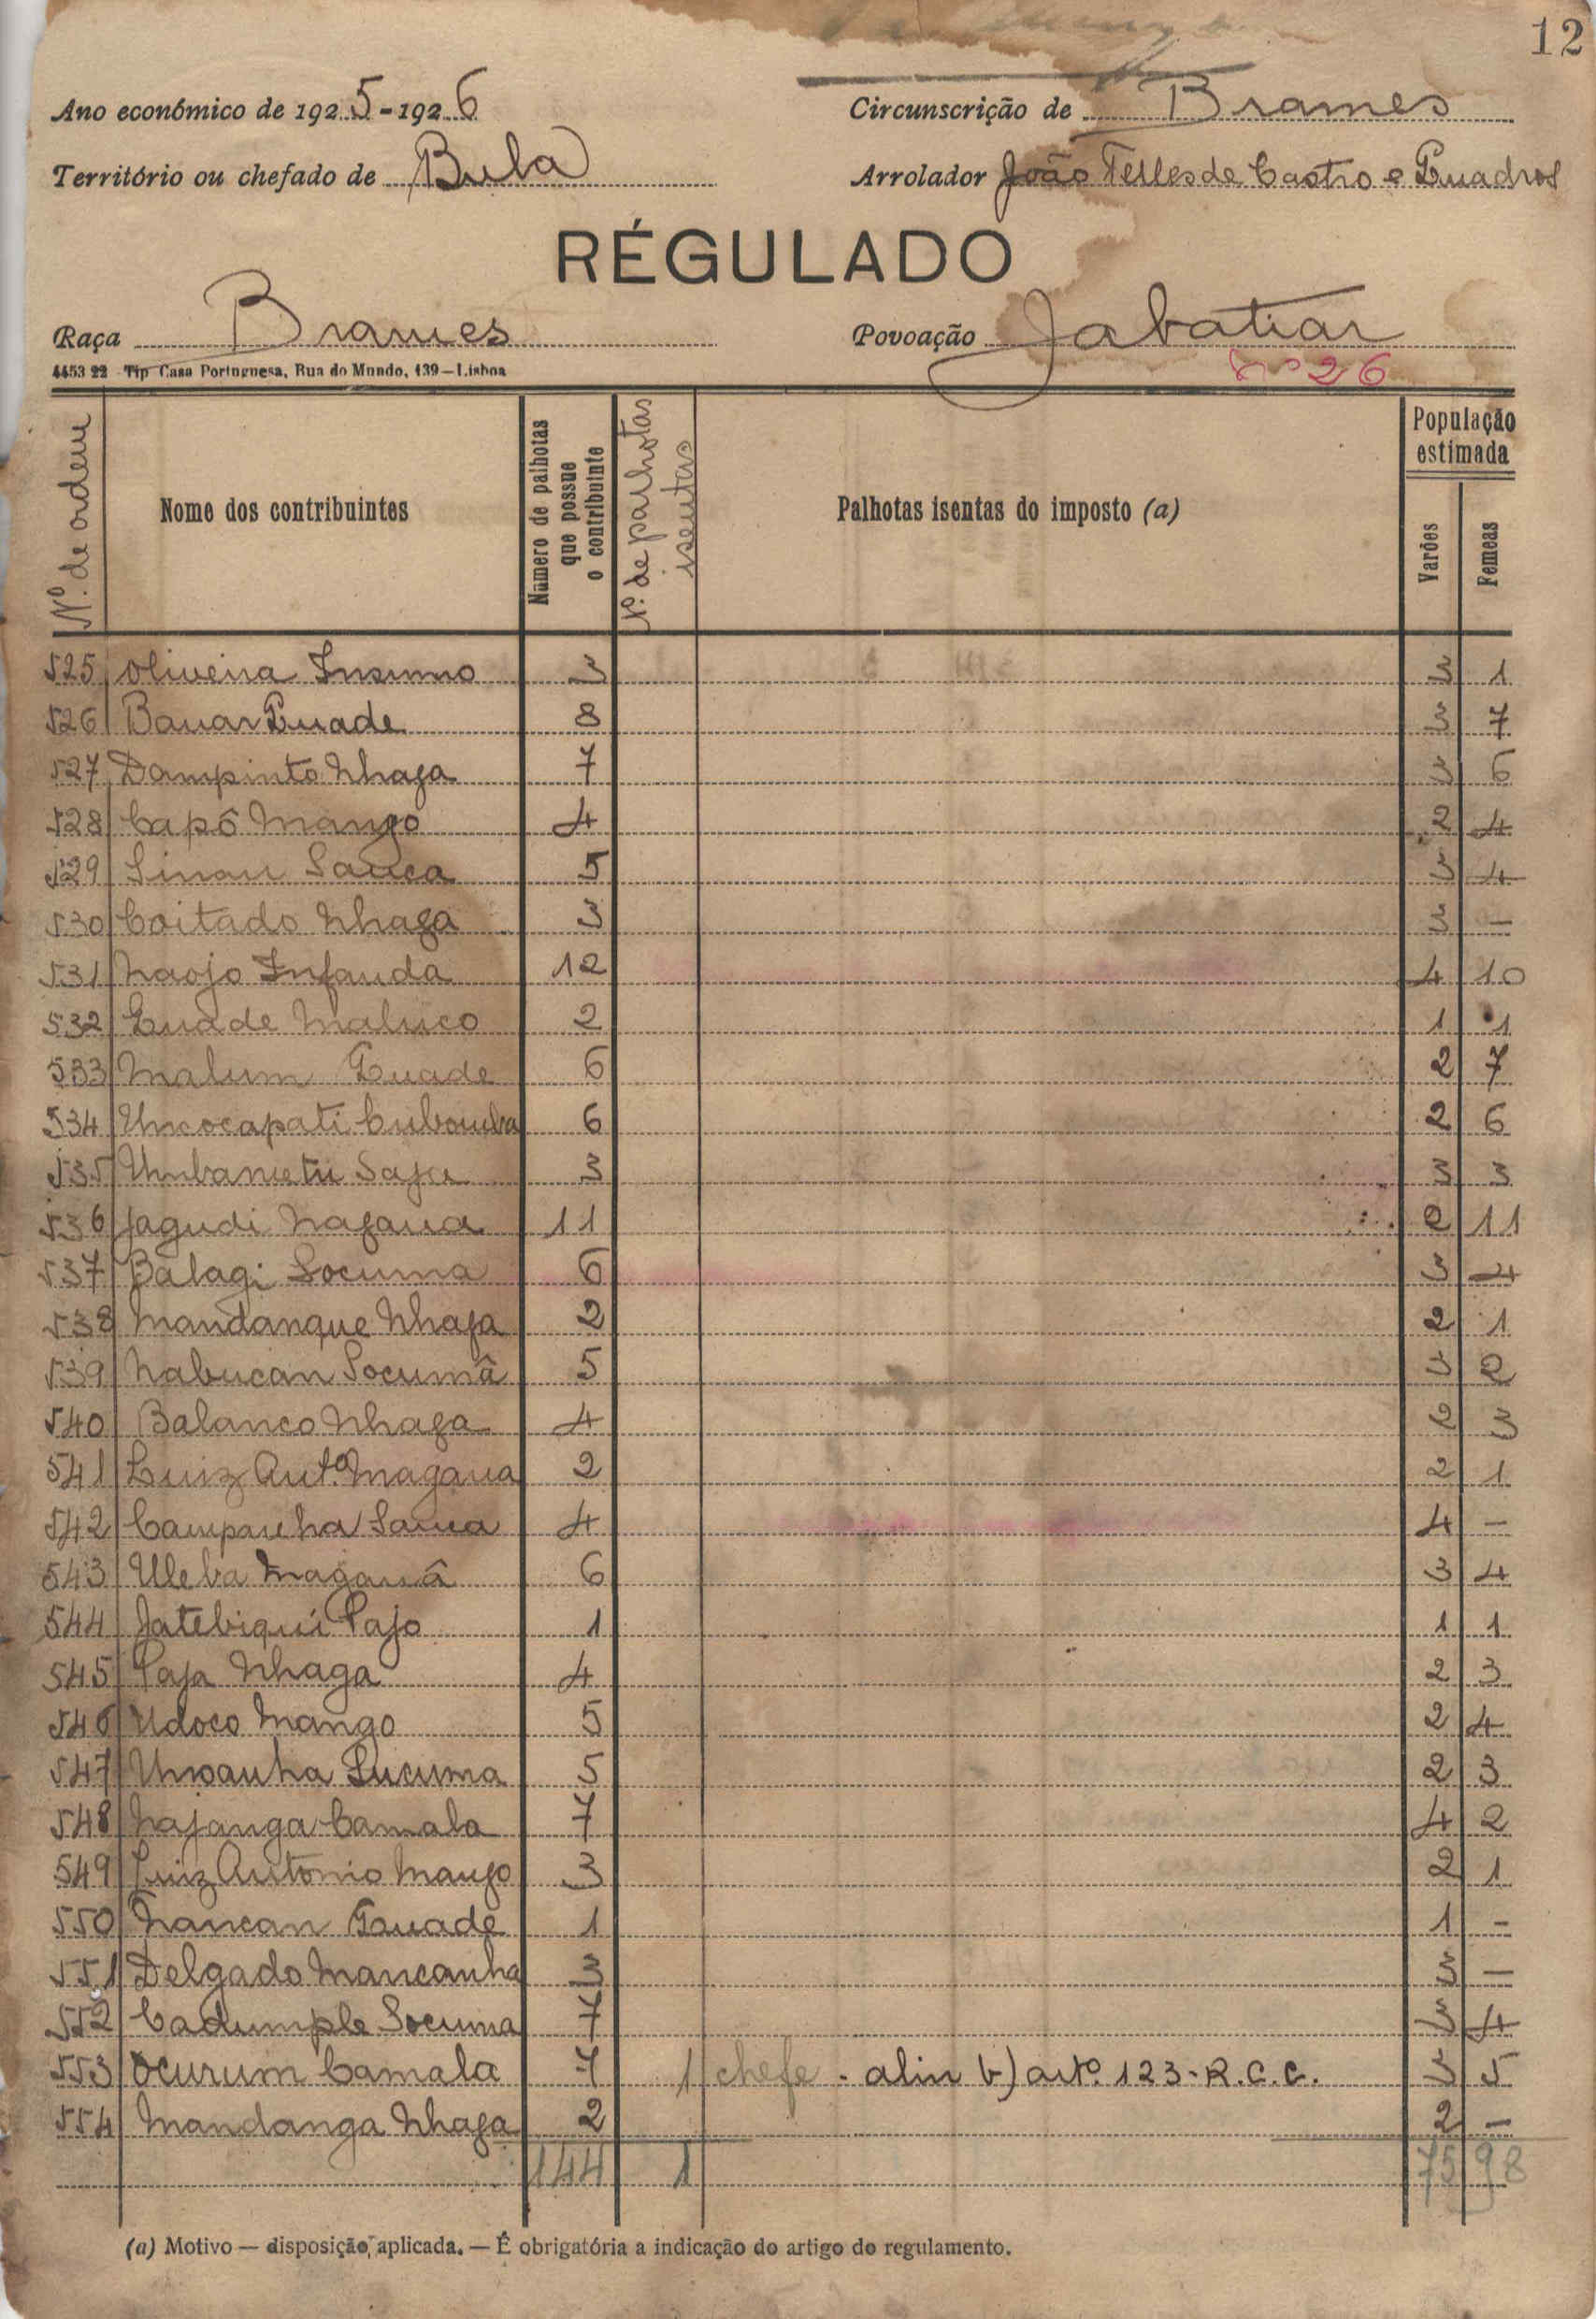 12
Ano económico de 1925-1926 Circunscrição de Brames
Território ou chefado de Bula Arrolador João Telles de Castro e Quadros
RÉGULADO
Raça Brames Povoação Jabatiar
4453 22 Tip Casa Portuguesa, Rua do Mundo, 139—Lisboa nº 26
Nº. de ordem
Nome dos contribuintes
Número de palhotas que possue o contribuinte
Nº. de palhotas isentas
Palhotas isentas do imposto (a)
População estimada
Varões
Femeas
525 Oliveira Insumo 3 3 1
526 Bauar Quade 8 3 7
527 Dampinto Nhaga 7 3 6
528 Capô Mango 4 2 4
529 Sinan Sanca 5 3 4
530 Coitado Nhaga 3 3 —
531 Naojo Infanda 12 4 10
532 Quade Maluco 2 1 1
533 Malum Quade 6 2 7
534 6 2 6
535 3 3 3
536 Jagudi 11 2 11
537 Balagi Socuma 6 3 4
538 Mandanque Nhaga 2 2 1
539 Nabucan Socumâ 5 3 2
540 Balanco Nhaga 4 2 3
541 Luiz Antº. Magaua 2 2 1
542 4 4 —
543 6 3 4
544 1 1 1
545 Nhaga 4 2 3
546 Udoco Mango 5 2 4
547 Sucuma 5 2 3
548 Najanga Camala 7 4 2
549 Luiz Antonio Mango 3 2 1
550 Nancan Quade 1 1 —
551 Delgado Mancanha 3 3 —
552 Cadumple Socuma 7 3 4
553 Ocurum Camala 7 1 chefe - alin b) artº. 123-R.C.C. 3 5
554 Mandanga Nhaga 2 2 —
144 1 75 98
(a) Motivo — disposição, aplicada. — É obrigatória a indicação do artigo do regulamento.